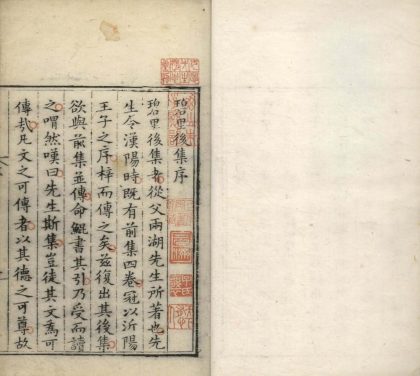 碧里後集序
碧里後集者從父兩湖先生所著也先
生令漢陽時既有前集四卷冠以沂陽
王子之序梓而傳之矣茲復出其後集
欲與前集並傳命鯤書其引乃受而讀
之喟然嘆曰先生斯集豈徒其文焉可
傳㢤凡文之可傳者以其德之可尊故